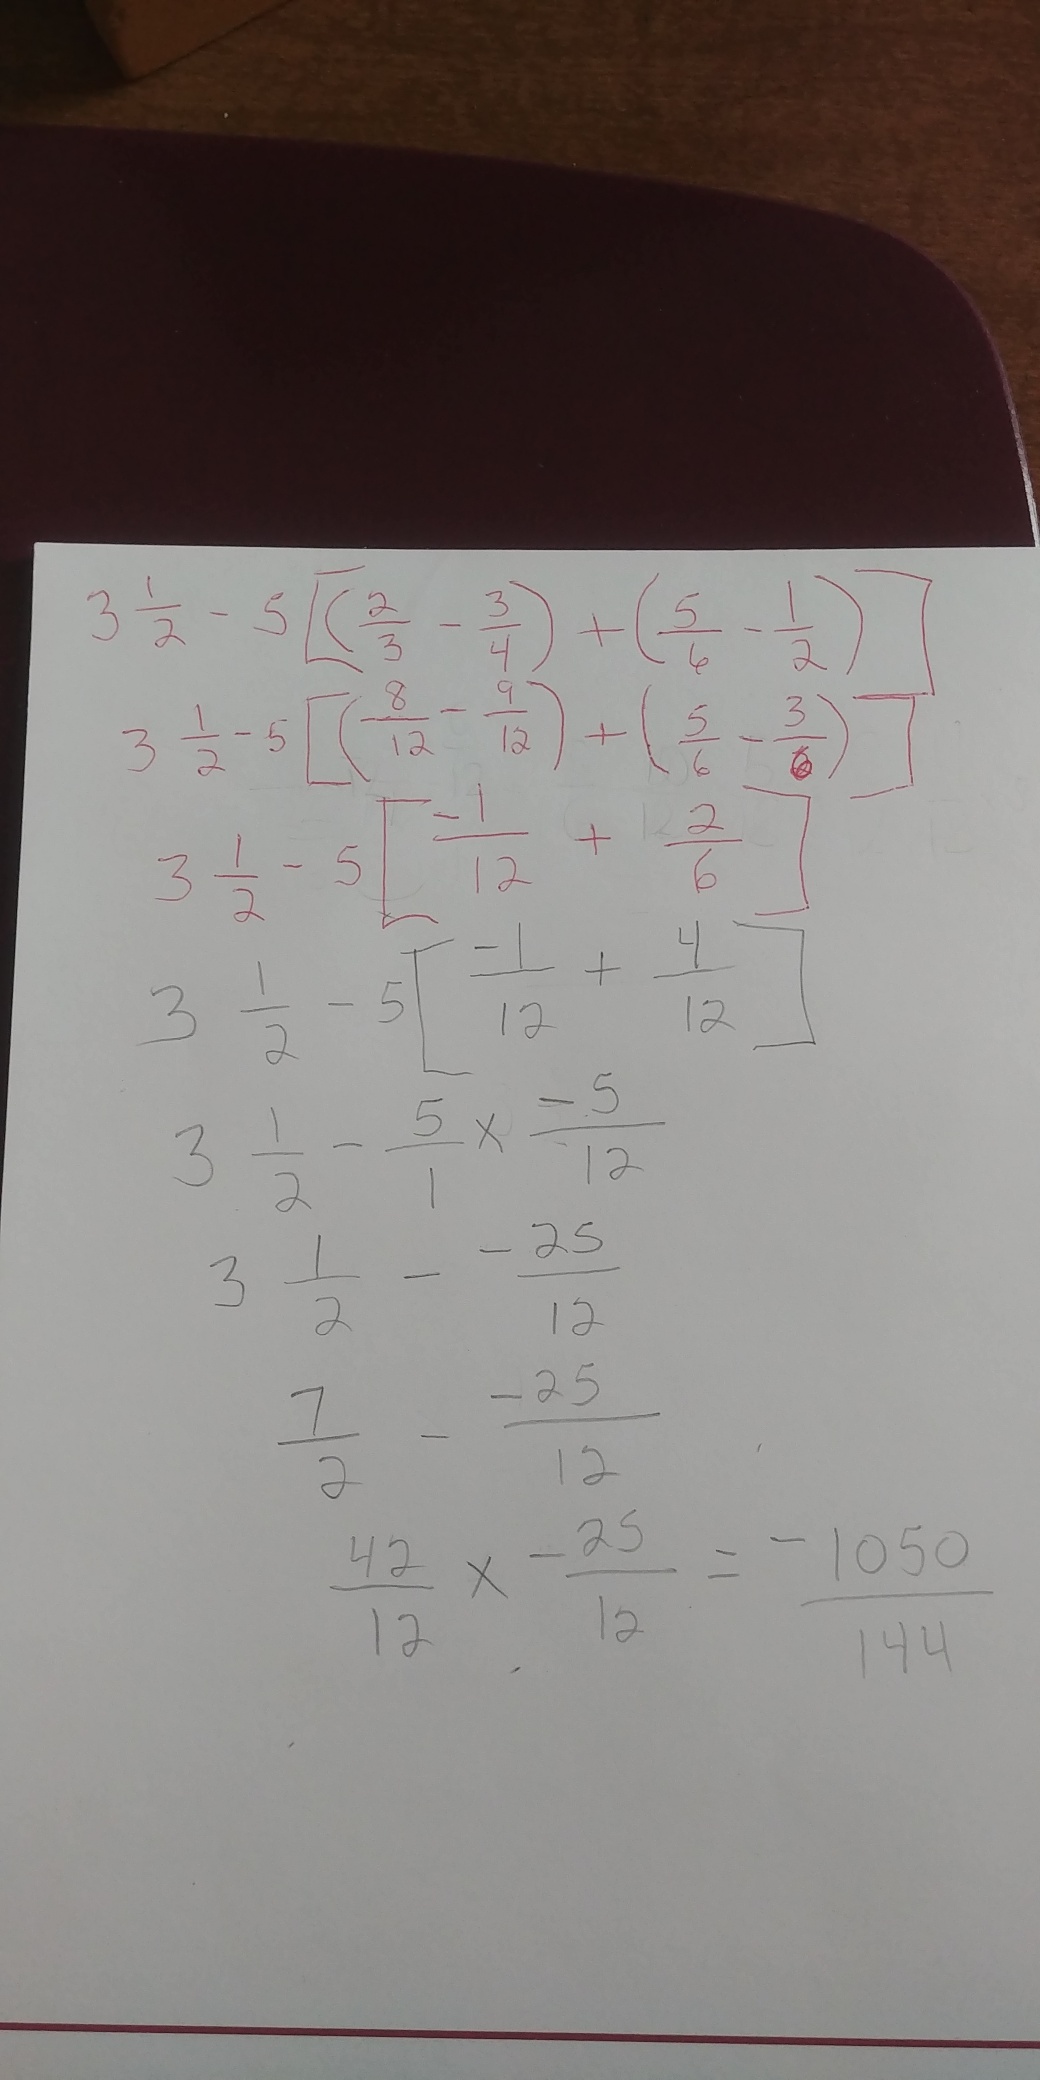 3 1/2 - 5[(2/3 - 3/4) + (5/6 - 1/2)]
3 1/2 - 5[(8/12 - 9/12) + (5/6 - 3/6)]
3 1/2 - 5[-1/12 + 2/6]
3 1/2 - 5[-1/12 + 4/12]
3 1/2 - 5/1 × -5/12
3 1/2 - -25/12
7/2 - -25/12
42/12 × -25/12 = -1050/144